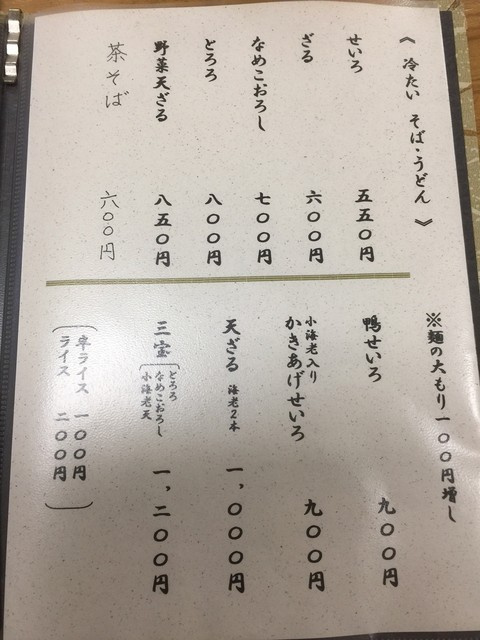 《 冷たい そば・うどん 》
せいろ 五五〇円
ざる 六〇〇円
なめこおろし 七〇〇円
とろろ 八〇〇円
野菜天ざる 八五〇円
茶そば 六〇〇円
※麺の大もり一〇〇円増し
鴨せいろ 九〇〇円
小海老入り
かきあげせいろ 九〇〇円
天ざる 海老2本 一、〇〇〇円
三宝 一、二〇〇円
とろろ
なめこおろし
小海老天
半ライス 一〇〇円
ライス 二〇〇円